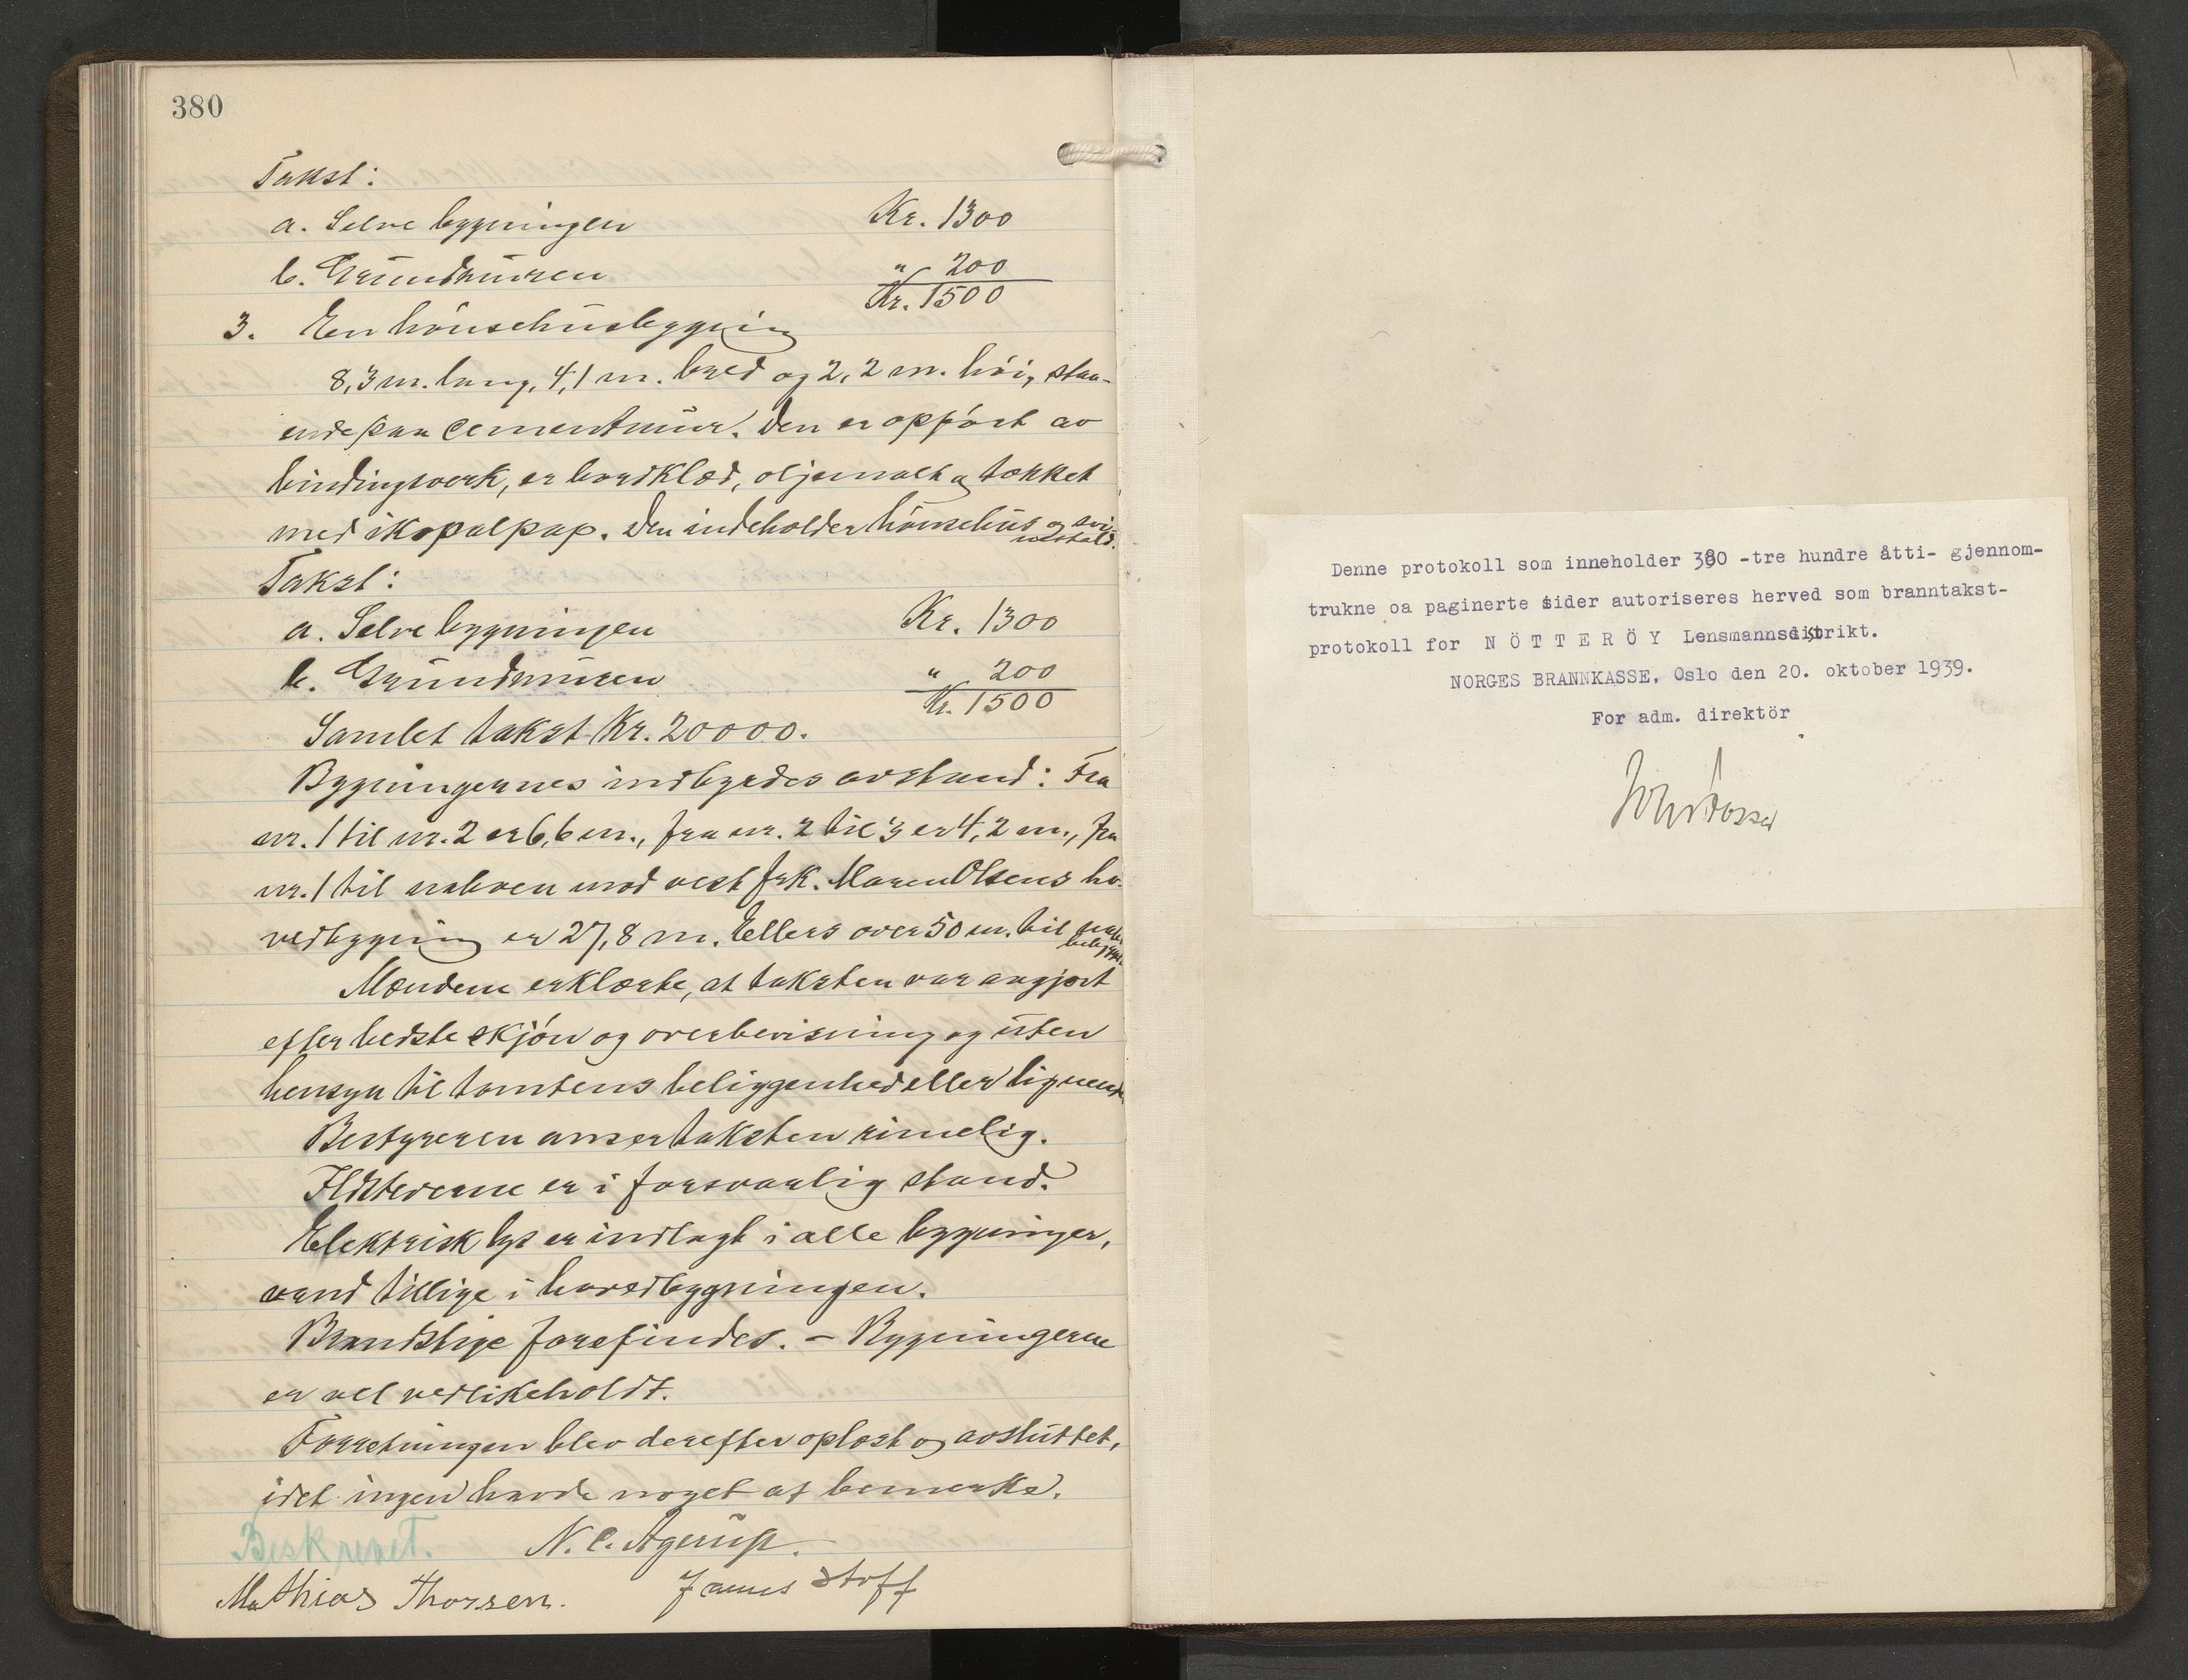 380
Takst:
a. Selve bygningen Kr. 1300
b. Grundmuren " 200
Kr. 1500
3. En hönsehusbygning
8,3 m. lang, 4,1 m. bred og 2,2 m. höi, staa-
ende paa cementmur. Den er opfört av
bindingsverk, er bordklæd, oljemalt og tækket
med ikopalpap. Den indeholder hönsehus og svi-
nestald.
Takst:
a. Selve bygningen Kr. 1300
b. Grundmuren " 200
Kr. 1500
Samlet takst Kr. 20000.
Bygningernes indbyrdes avstand: Fra
nr. 1 til nr. 2 er 6,6 m., fra nr. 2 til 3 er 4,2 m., fra
nr. 1 til naboen mod vest frk. Maren Olsens ho-
vedbygning er 27,8 m. Ellers over 50 m. til
Mændene erklærte, at taksten var avgjort
efter bedste skjön og overbevisning og uten
hensyn til tomtens beliggenhed eller lignende
Bestyreren anser taksten rimelig.
Ildstederne er i forsvarlig stand.
Elektrisk lys er indlagt i alle bygninger,
vand tillige i hovedbygningen.
Brandstige forefindes. - Bygningerne
er vel vedlikeholdt.
Forretningen blev derefter oplæst og avsluttet,
idet ingen havde noget at bemerke.
Beskrevet. N. C. Agerup.
Mathias Thorsen. James Stoff
Denne protokoll som inneholder 380 -tre hundre åtti- gjennom-
trukne oa paginerte sider autoriseres herved som branntakst-
protokoll for N Ö T T E R Ö Y Lensmannsdistrikt.
NORGES BRANNKASSE, Oslo den 20. oktober 1939.
For adm. direktör